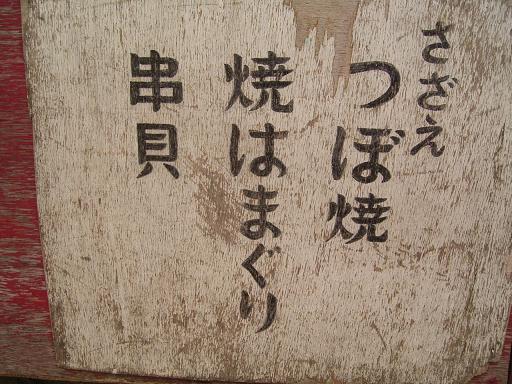 さざえ
つぼ焼
焼はまぐり
串貝